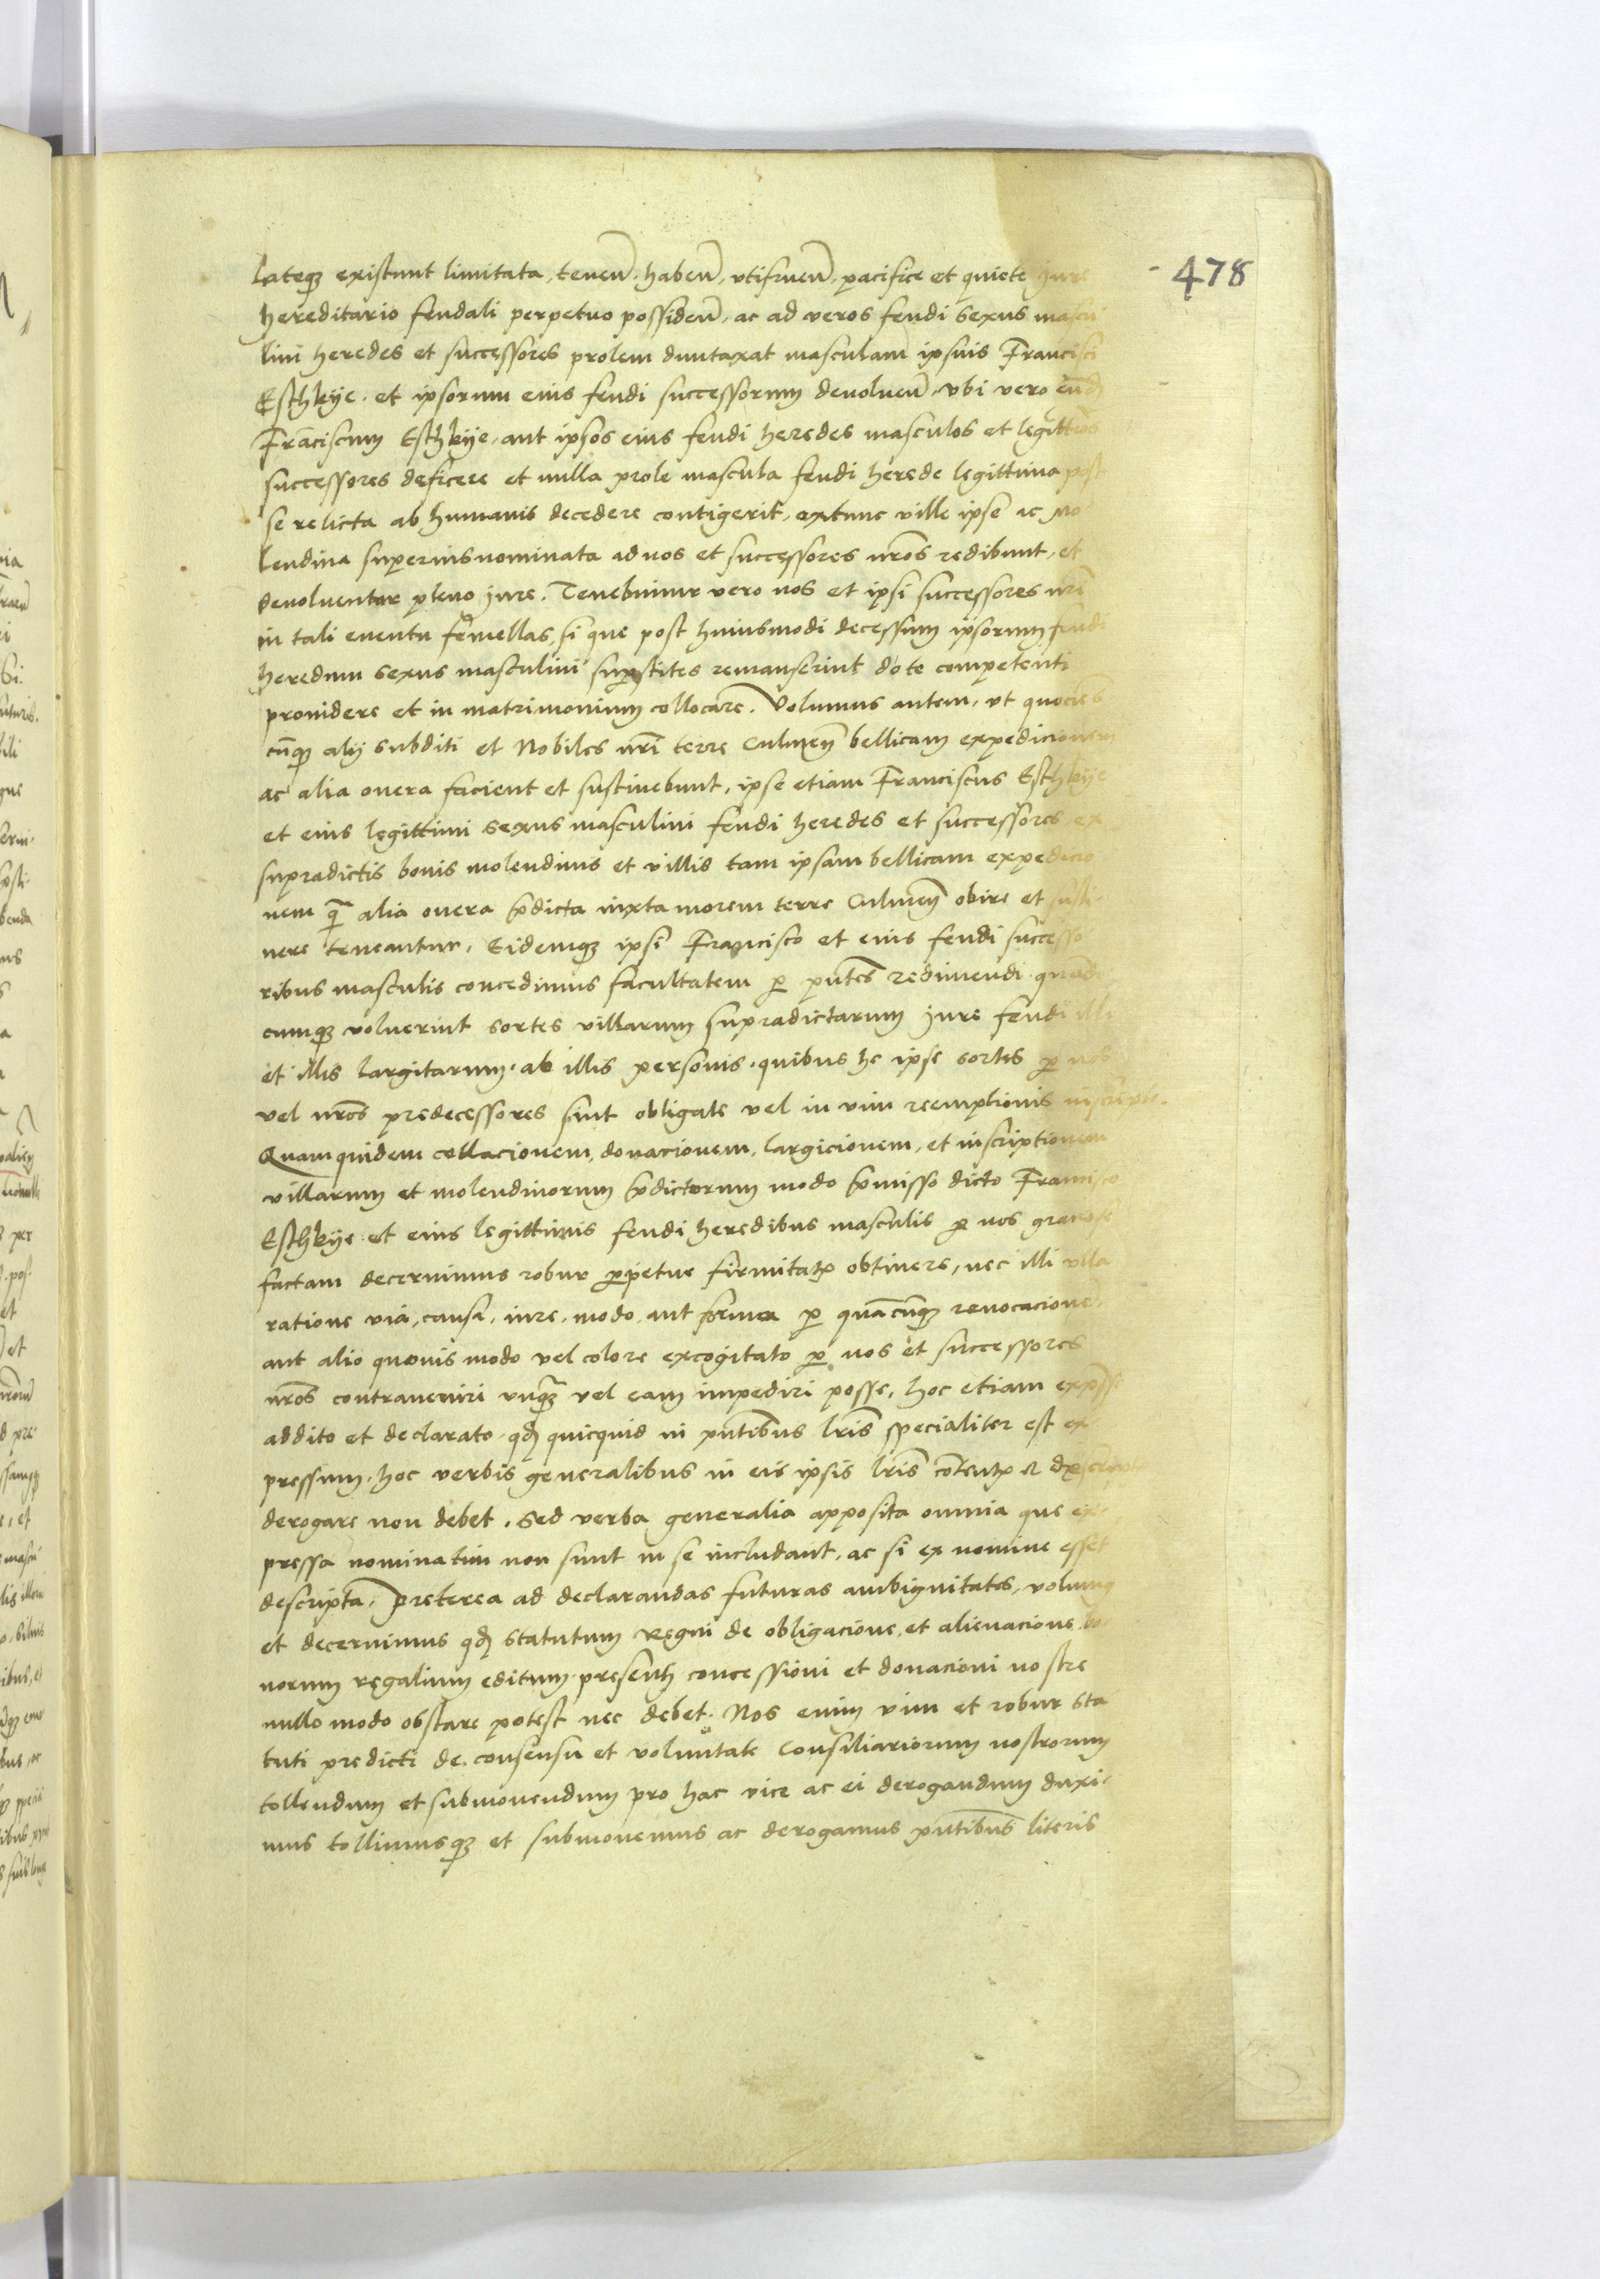 478
lateqz existunt limitata, tenen̄. haben̄, vtifruen̄, pacifice et quiete iure
hereditario feudali perpetuo possiden̄, ac ad veros feudi sexus mascu
lini heredes et successores prolem duntaxat masculam ipsius Francisci
Esthkije. et ipsorum eius feudi successorum deuoluen̄. vbi vero eund
Franciscum Esthkije, aut ipsos eius feudi heredes masculos et legittimos
successores deficere et nulla prole mascula feudi herede legittima post
se relicta ab humanis decedere contigerit, extunc ville ipse ac mo
lendina superius nominata ad nos et successores nr̄os redibunt, et
deuoluentur pleno jure. Tenebimur vero nos et ipsi successores nr̄i
in tali euentu femellas, si que post huiusmodi decessum ipsorum feudi
heredum sexus masculini suꝑstites remanserint dote competenti
prouidere et in matrimonium collocare. Volumus autem, vt quocies
cunqz alij subditi et Nobiles nr̄i terre Culmen̄ bellicam expedicionem
ac alia onera facient et sustinebunt, ipse etiam Franciscus Esthkije
et eius legittimi sexus masculini feudi heredes et successores ex
supradictis bonis molendinis et villis tam ipsam bellicam expedicio
nem q̄ alia onera p̄dicta iuxta morem terre Culmen̄ obire et susti
nere teneantur, Eidemqz ipsi Francisco et eius feudi successo
ribus masculis concedimus facultatem ꝑ pn̄tes redimendi quand
cumqz voluerint sortes villarum supradictarum jure feudi illi
et illis largitarum, ab illis personis, quibus he ipse sortes ꝑ nos
vel nr̄os predecessores sint obligate vel in vim reemptionis inscripte.
Quamquidem collacionem, donacionem, largicionem, et inscriptionem
villarum et molendinorum p̄dictorum modo p̄misso dicto Francisco
Esthkije et eius legittimis feudi heredibus masculis ꝑ nos
factam decernimus robur ꝑpetue firmitatis obtinere, nec illi vlla
ratione via, causa, iure, modo, aut forma ꝑ quācūqz reuocacione,
aut alio quouis modo vel colore excogitato ꝑ nos et successores
nr̄os contraueniri vnq̄z vel eam impediri posse, hoc etiam exp̄sse
addito et declarato, qd̄ quicquid in pn̄tibus lr̄is specialiter est ex
pressum, hoc verbis generalibus in eis ipsis lr̄is contentis et
derogare non debet. Sed verba generalia apposita omnia que ex
pressa nominatim non sunt in se includant, ac si ex nomine esset
descripta, Preterea ad declarandas futuras ambiguitates, volumus
et decernimus qd̄ statutum Regni de obligacione, et alienacione bo
norum regalium editum presenti concessioni et donacioni nostre
nullo modo obstare potest nec debet. Nos enim vim et robur sta
tuti predicti de consensu et voluntate Consiliariorum nostrorum
tollendum et submouendum pro hac vice ac ei derogandum duxi
mus tollimusqz et submouemus ac derogamus pn̄tibus literis